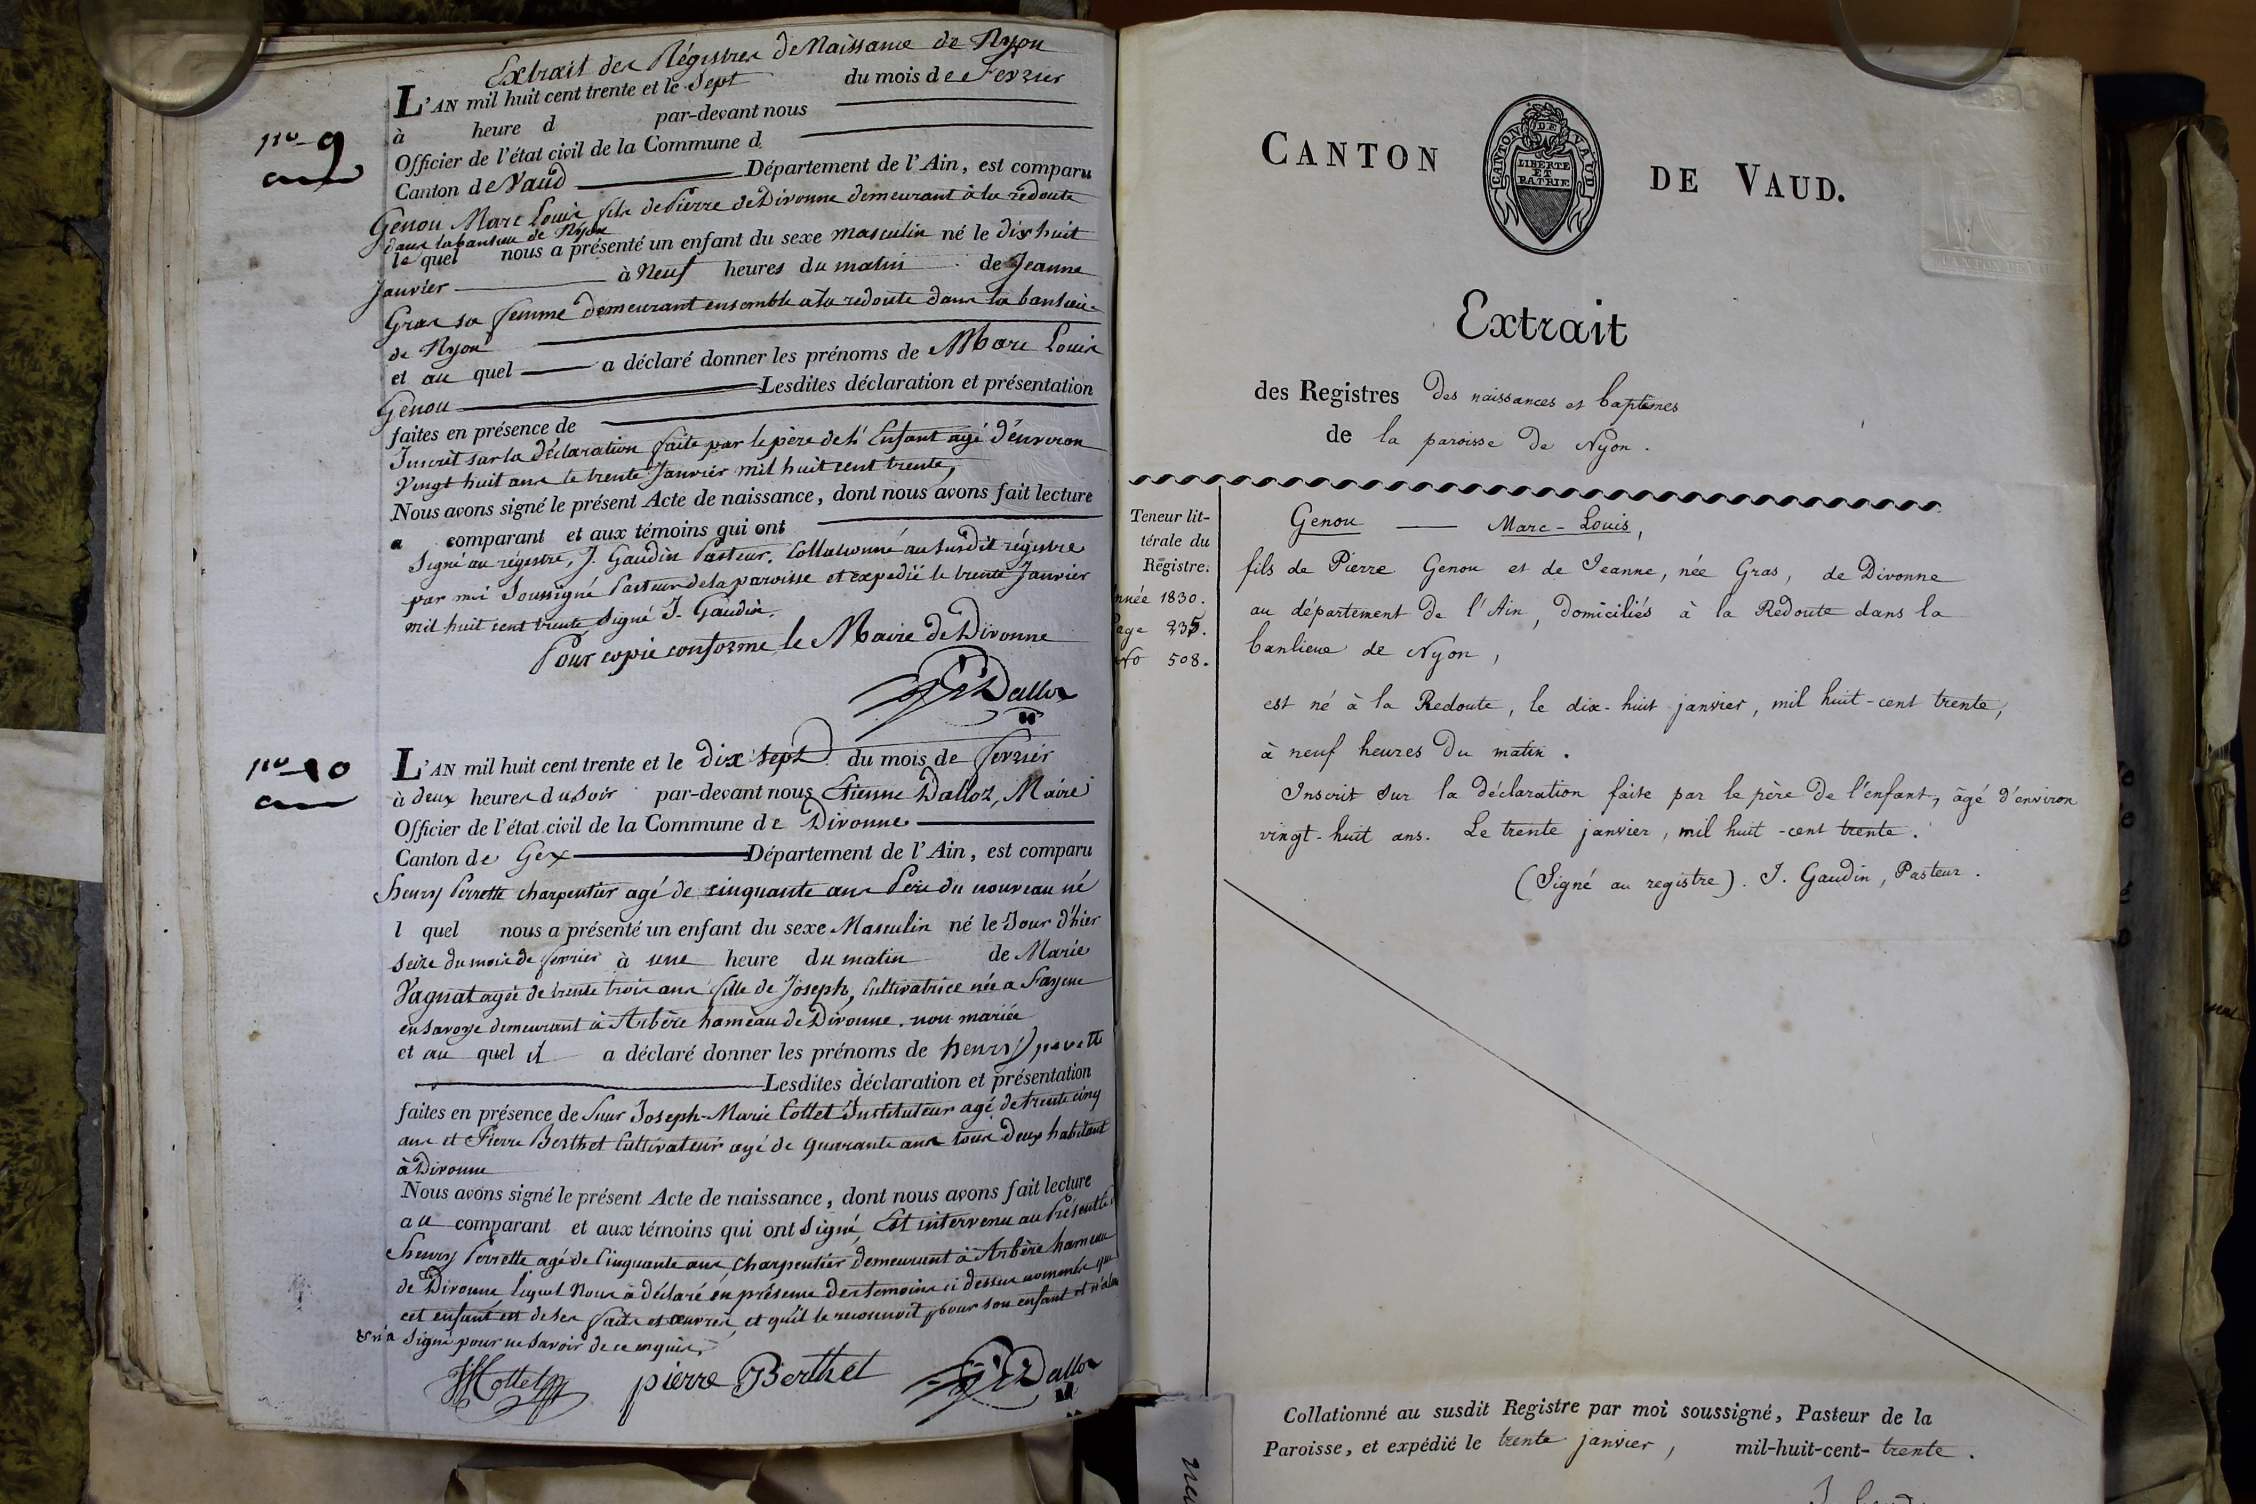 Extrait des Régistres de Naissance de Nyon
L'AN mil huit cent trente et le Sept du mois de Fevrier
à heure d par-devant nous
Officier de l'état civil de la Commune d
Canton de Vaud Département de l'Ain, est comparu
Genou Marc Louis fils de Pierre de Divonne demeurant à la redoute
dans la banlieu de Nyon
le quel nous a présenté un enfant du sexe masculin né le dix huit
Janvier à Neuf heures du matin de Jeanne
Gras sa femme demeurant ensemble a la redoute dans la banlieue
de Nyon
et au quel a déclaré donner les prénoms de Marc Louis
Genou Lesdites déclaration et présentation
faites en présence de
Inscrit sur la déclaration faite par le père de l'Enfant agé d'environ
Vingt huit ans le trente Janvier mil huit cent trente,
Nous avons signé le présent Acte de naissance, dont nous avons fait lecture
a comparant et aux témoins qui ont
Signé au régistre, J. Gaudin Pasteur. Collationné au susdit régistre
par moi Soussigné Pasteur de la paroisse et expedié le trente Janvier
mil huit cent trente signé J. Gaudin.
Pour copie conforme le Maire de Divonne
Dalloz
no 9
no 10
L'AN mil huit cent trente et le Dix Sept du mois de fevrier
à deux heures du soir par-devant nous Etienne Dalloz, Maire
Officier de l'état civil de la Commune de Divonne
Canton de Gex Département de l'Ain, est comparu
henry Perrette charpentier agé de cinquante ans Pere du nouveau né
l quel nous a présenté un enfant du sexe Masculin né le Jour d'hier
seize du mois de fevrier à une heure du matin de Marie
Vagnat agée de trente trois ans fille de Joseph, Cultivatrice née a
en savoye demeurant à Arbère hameau de Divonne. non mariée
et au quel il a déclaré donner les prénoms de henry perette
Lesdites déclaration et présentation
faites en présence de Sieur Joseph-Marie Collet Instituteur agé de trente cinq
ans et Pierre Berthet Cultivateur agé de quarante ans tous deux habitant
à Divonne
Nous avons signé le présent Acte de naissance, dont nous avons fait lecture
au comparant et aux témoins qui ont Signé, Est intervenu au Présent
henry Perrette agé de Cinquante ans Charpentier demeurant à Arbère hameau
de Divonne lequel Nous à déclaré en présence des temoins ci dessus nommés que
cet enfant est de ses faits et œuvres, et qu'il le reconnoit pour son enfant et
& n'a Signé pour ne savoir de ce enquis.
Collet pierre Berthet Dalloz
CANTON DE VAUD
LIBERTÉ
ET
PATRIE
CANTON DE VAUD.
Extrait
des Registres des naissances et baptêmes
de la paroisse de Nyon.
Teneur lit-
térale du
Registre.
nnée 1830.
age 235.
No 508.
Genou — Marc-Louis,
fils de Pierre Genou et de Jeanne, née Gras, de Divonne
au département de l'Ain, domiciliés à la Redoute dans la
banlieue de Nyon,
est né à la Redoute, le dix-huit janvier, mil huit-cent trente,
à neuf heures du matin.
Inscrit sur la déclaration faite par le père de l'enfant, âgé d'environ
vingt-huit ans. Le trente janvier, mil huit-cent trente.
(Signé au registre). J. Gaudin, Pasteur.
Collationné au susdit Registre par moi soussigné, Pasteur de la
Paroisse, et expédié le trente janvier, mil-huit-cent-trente.